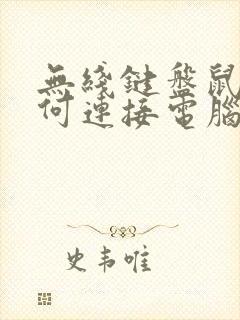 無綫鍵盤鼠
何連接電腦
史韦唯